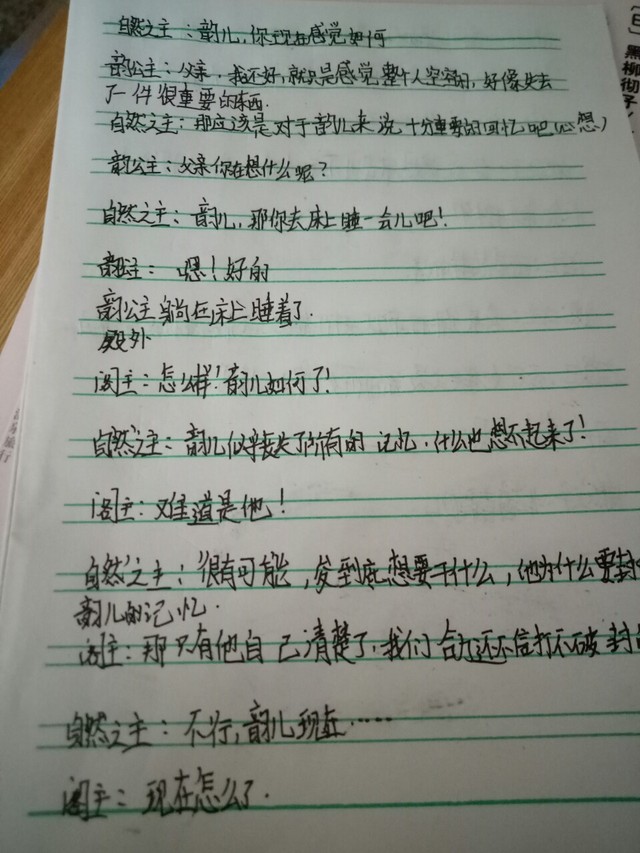 自然之主：韵儿，你现在感觉如何
韵公主：父亲，我不好，就只是感觉整个人空空的，好像失去
了一件很重要的东西．
自然之主：那应该是对于韵儿来说十分重要的回忆吧（心想）
韵公主：父亲你在想什么呢？
自然之主：韵儿，那你去床上睡一会儿吧！
韵公主：嗯！好的
韵公主躺在床上睡着了．
殿外
阁主：怎么样！韵儿如何了！
自然之主：韵儿似乎丧失了所有的记忆．什么也想不起来了！
阁主：难道是他！
自然之主：很有可能，到底想要干什么，他为什么要封
韵儿的记忆．
阁主：那只有他自己清楚了，我们合力还不信打不破封
自然之主：不行，韵儿现在……
阁主：现在怎么了．
黑柳彻子